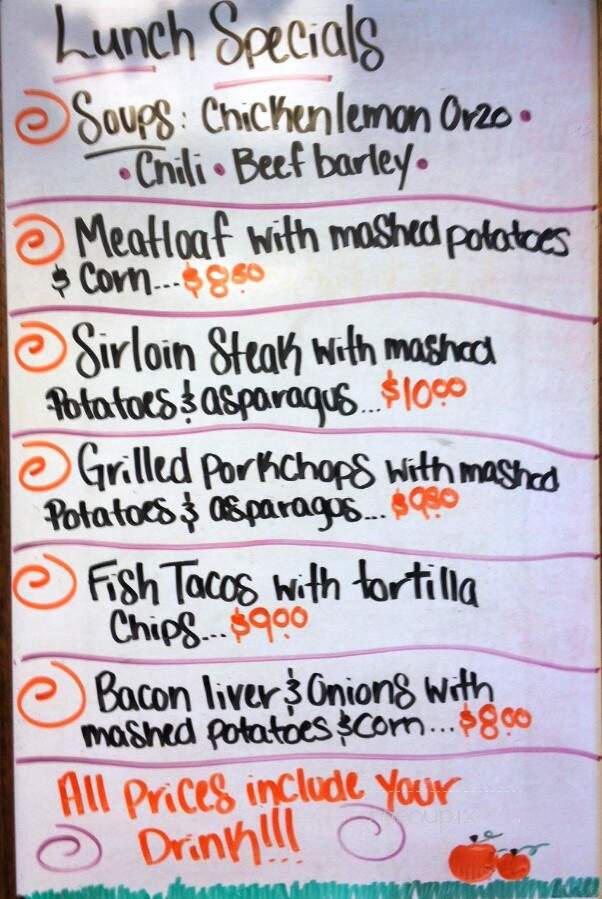 Lunch Specials
Soups: Chicken lemon Orzo •
• Chili • Beef barley •
Meatloaf with mashed potatoes
& Corn...$8.50
Sirloin Steak with mashed
Potatoes & asparagus...$10.00
Grilled Porkchops with mashed
Potatoes & asparagus... $9.50
Fish Tacos with tortilla
Chips...$9.00
Bacon liver & Onions with
mashed potatoes & corn...$8.00
All Prices include Your
Drink!!!
menupix